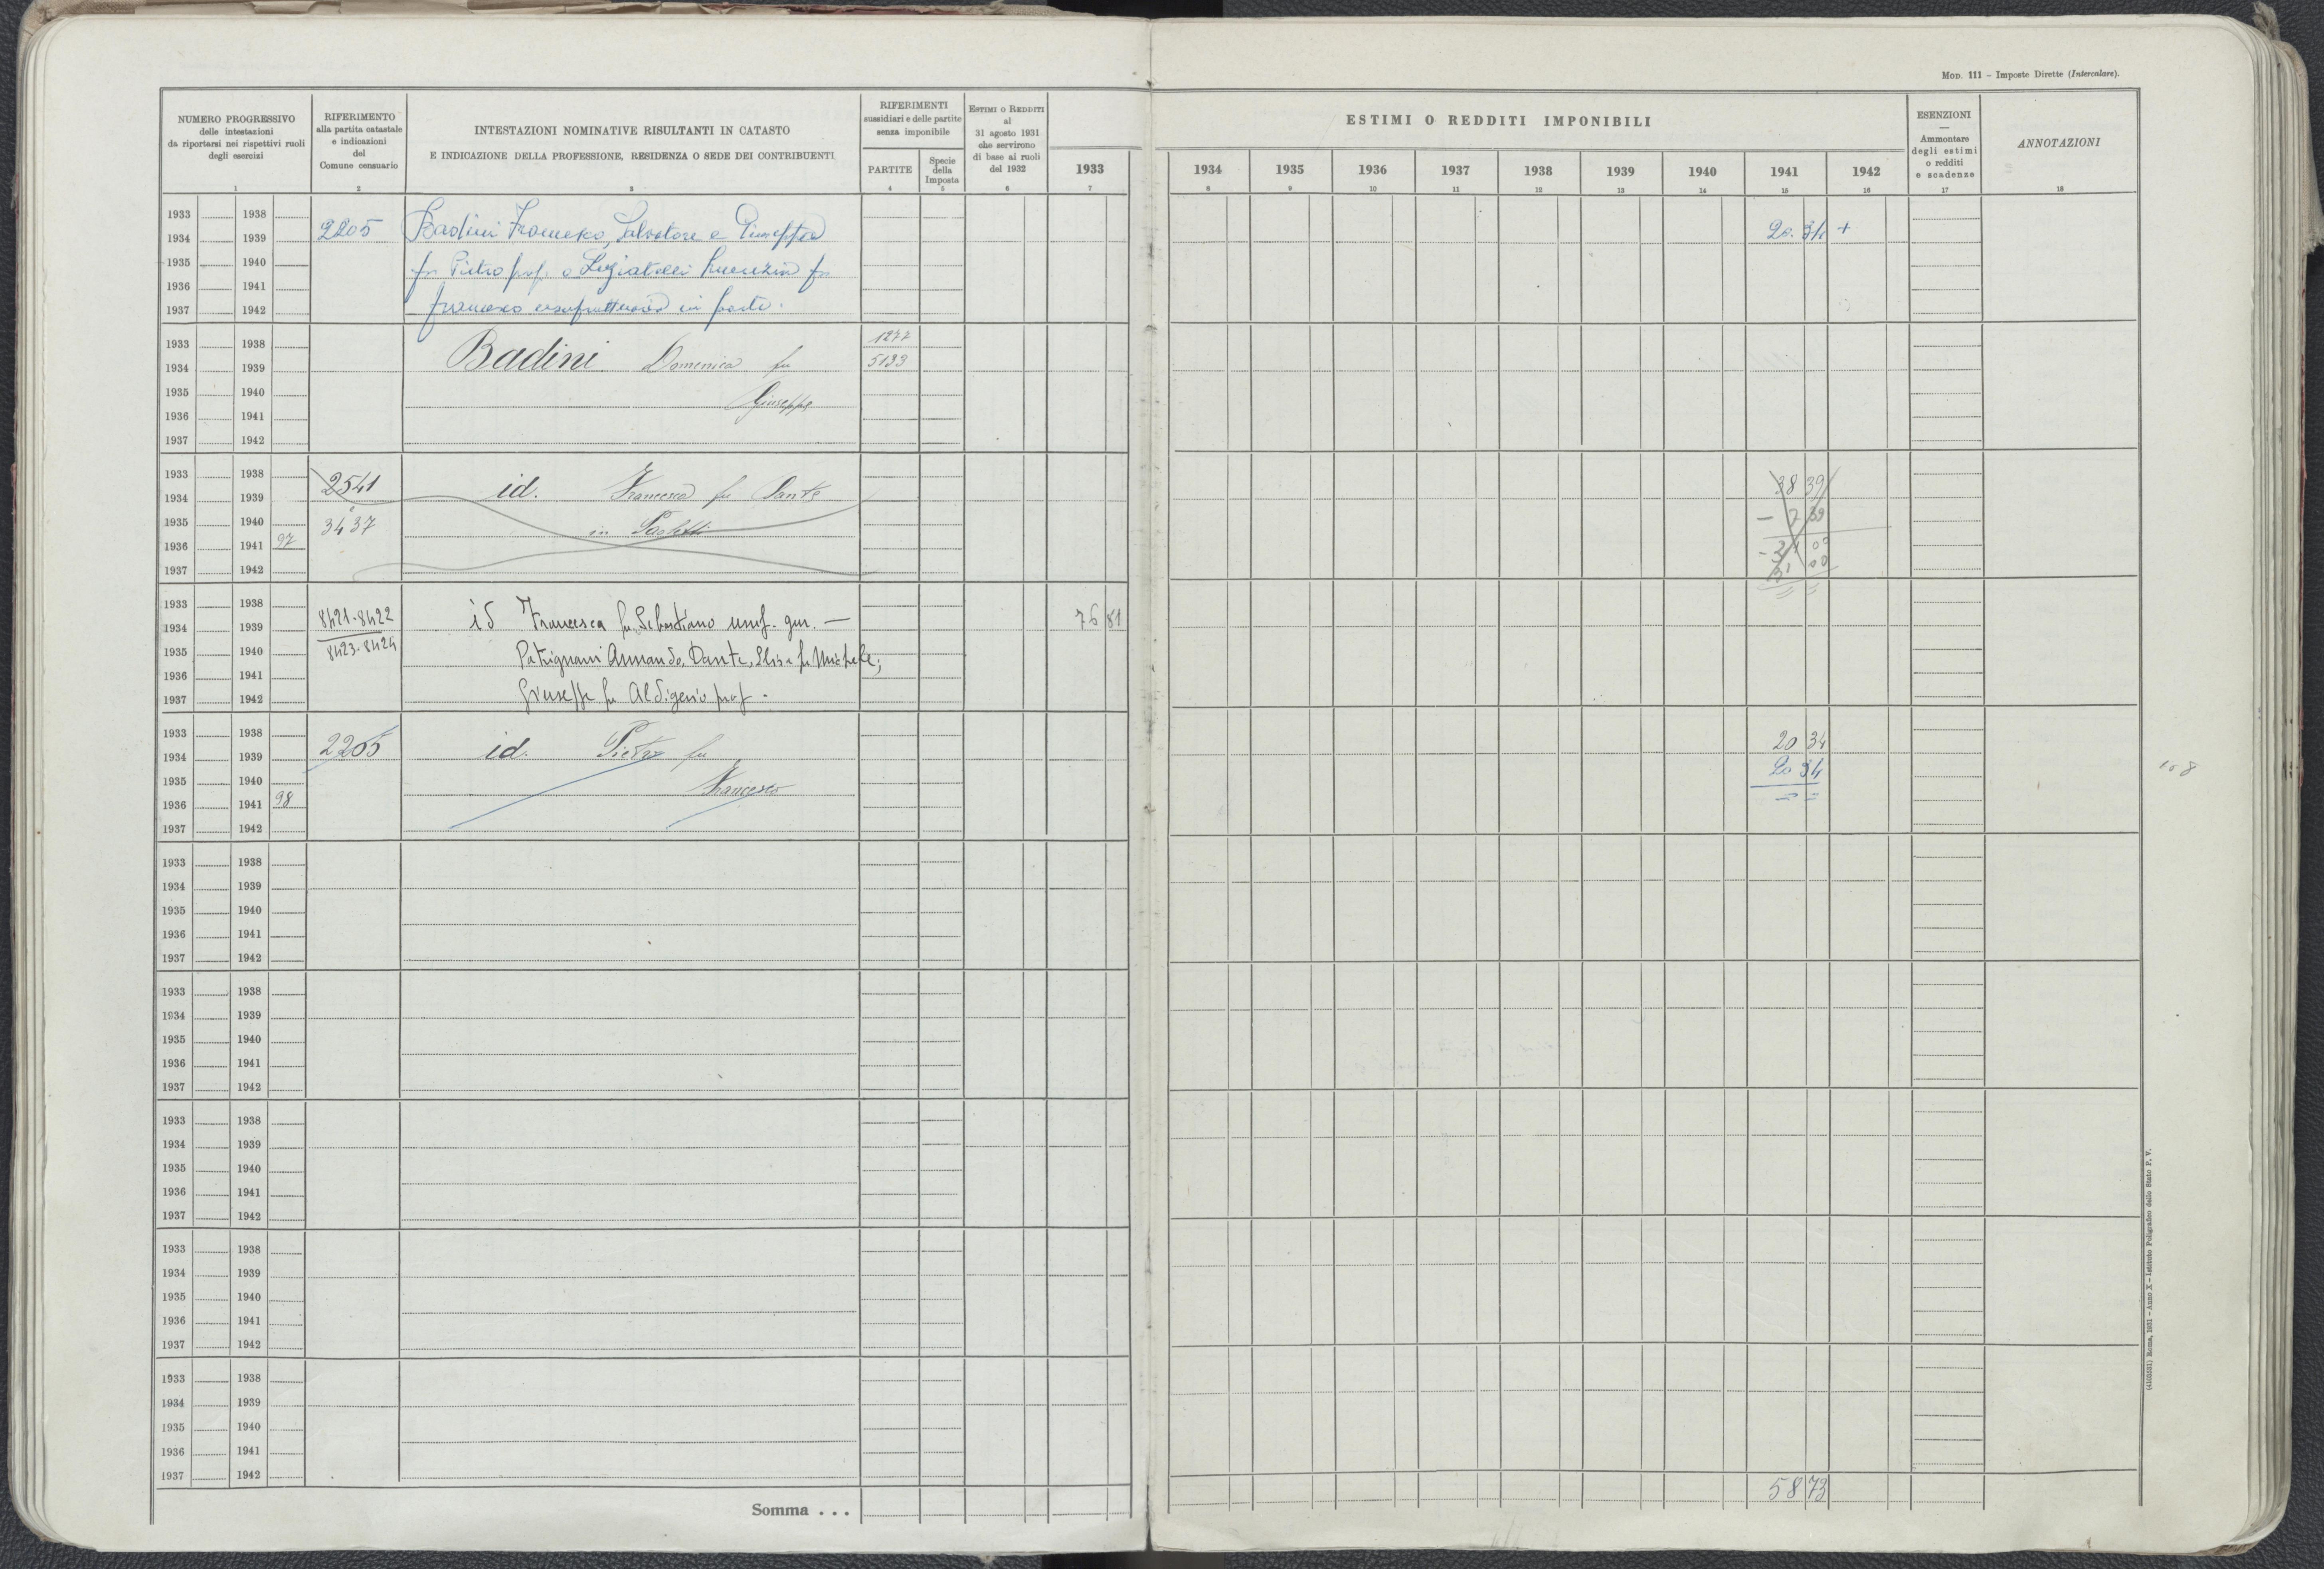 MOD. 111 – Imposte Dirette (Intercalare).
NUMERO PROGRESSIVO
delle intestazioni
da riportarsi nei rispettivi ruoli
degli esercizi
1
RIFERIMENTO
alla partita catastale
e indicazioni
del
Comune censuario
2
INTESTAZIONI NOMINATIVE RISULTANTI IN CATASTO
E INDICAZIONE DELLA PROFESSIONE, RESIDENZA O SEDE DEI CONTRIBUENTI
3
RIFERIMENTI
sussidiari e delle partite
senza imponibile
PARTITE
4
Specie
della
Imposta
5
ESTIMI O REDDITI
al
31 agosto 1931
che servirono
di base ai ruoli
del 1932
6
1933
7
ESTIMI O REDDITI IMPONIBILI
1934 1935 1936 1937 1938 1939 1940 1941 1942
8 9 10 11 12 13 14 15 16
ESENZIONI
—
Ammontare
degli estimi
o redditi
e scadenze
17
ANNOTAZIONI
18
1933 1938
1934 1939 2205 Badini Francesco, Salvatore e Giuseppa 20. 34 +
1935 1940 fu Pietro prop. e
1936 1941
1937 1942 francesco usufruttuaria in parte.
1933 1938 1277
1934 1939 Badini Domenica fu 5133
1935 1940 Giuseppe
1936 1941
1937 1942
1933 1938 2541 38 39
1934 1939 id. Francesca fu Sante
1935 1940 3437 in Paoletti – 7 39
1936 1941 97
1937 1942 31 00
1933 1938 8421-8422
1934 1939 id Francesca fu Sebastiano usuf. gen. — 76 81
1935 1940 8423-8424 Patrignani Armando, Dante, Elisa fu Michele;
1936 1941
1937 1942 Giuseppe fu Aldigerio prop -
1933 1938
1934 1939 2205 id. Pietro fu 20 34
1935 1940 Francesco 20 34
1936 1941 98 = =
1937 1942
1933 1938
1934 1939
1935 1940
1936 1941
1937 1942
1933 1938
1934 1939
1935 1940
1936 1941
1937 1942
1933 1938
1934 1939
1935 1940
1936 1941
1937 1942
1933 1938
1934 1939
1935 1940
1936 1941
1937 1942
1933 1938
1934 1939
1935 1940
1936 1941
1937 1942
Somma . . . 58 73
(4103231) Roma, 1931 – Anno X – Istituto Poligrafico dello Stato P. V.